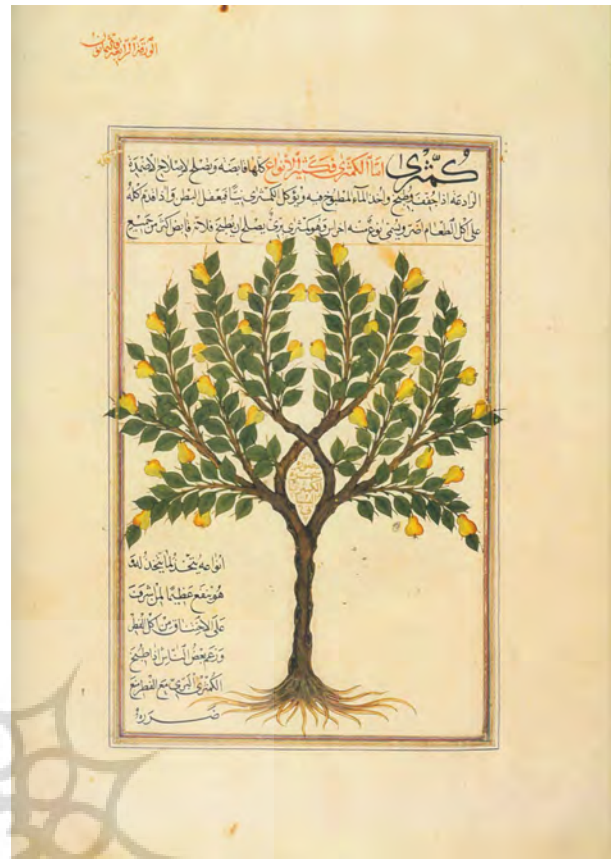 الورقة الرابعة والثمانون
كمثرى اما الكمثرى فكثير الانواع كلها قابضة ويصلح لاستلاح الاضمدة
الرادعة اذا جففت وطبخ واخذ الماء المطبوخ فيه ويؤكل الكمثرى نيئا فيعقل البطن واذا قدم اكله
على اكل الطعام اضر ويسمى نوع منه اخراس وهو كمثرى برى يصلح ان يطبخ فلانه قابض اكثر من جميع
الكمثرى
انواعه يتخذ لما يتخذ له
هو ينفع عظيما لمن اشرف
على الاختناق من اكل الفطر
وزعم بعض الناس اذا طبخ
الكمثرى البرى مع الفطر منع
ضرره